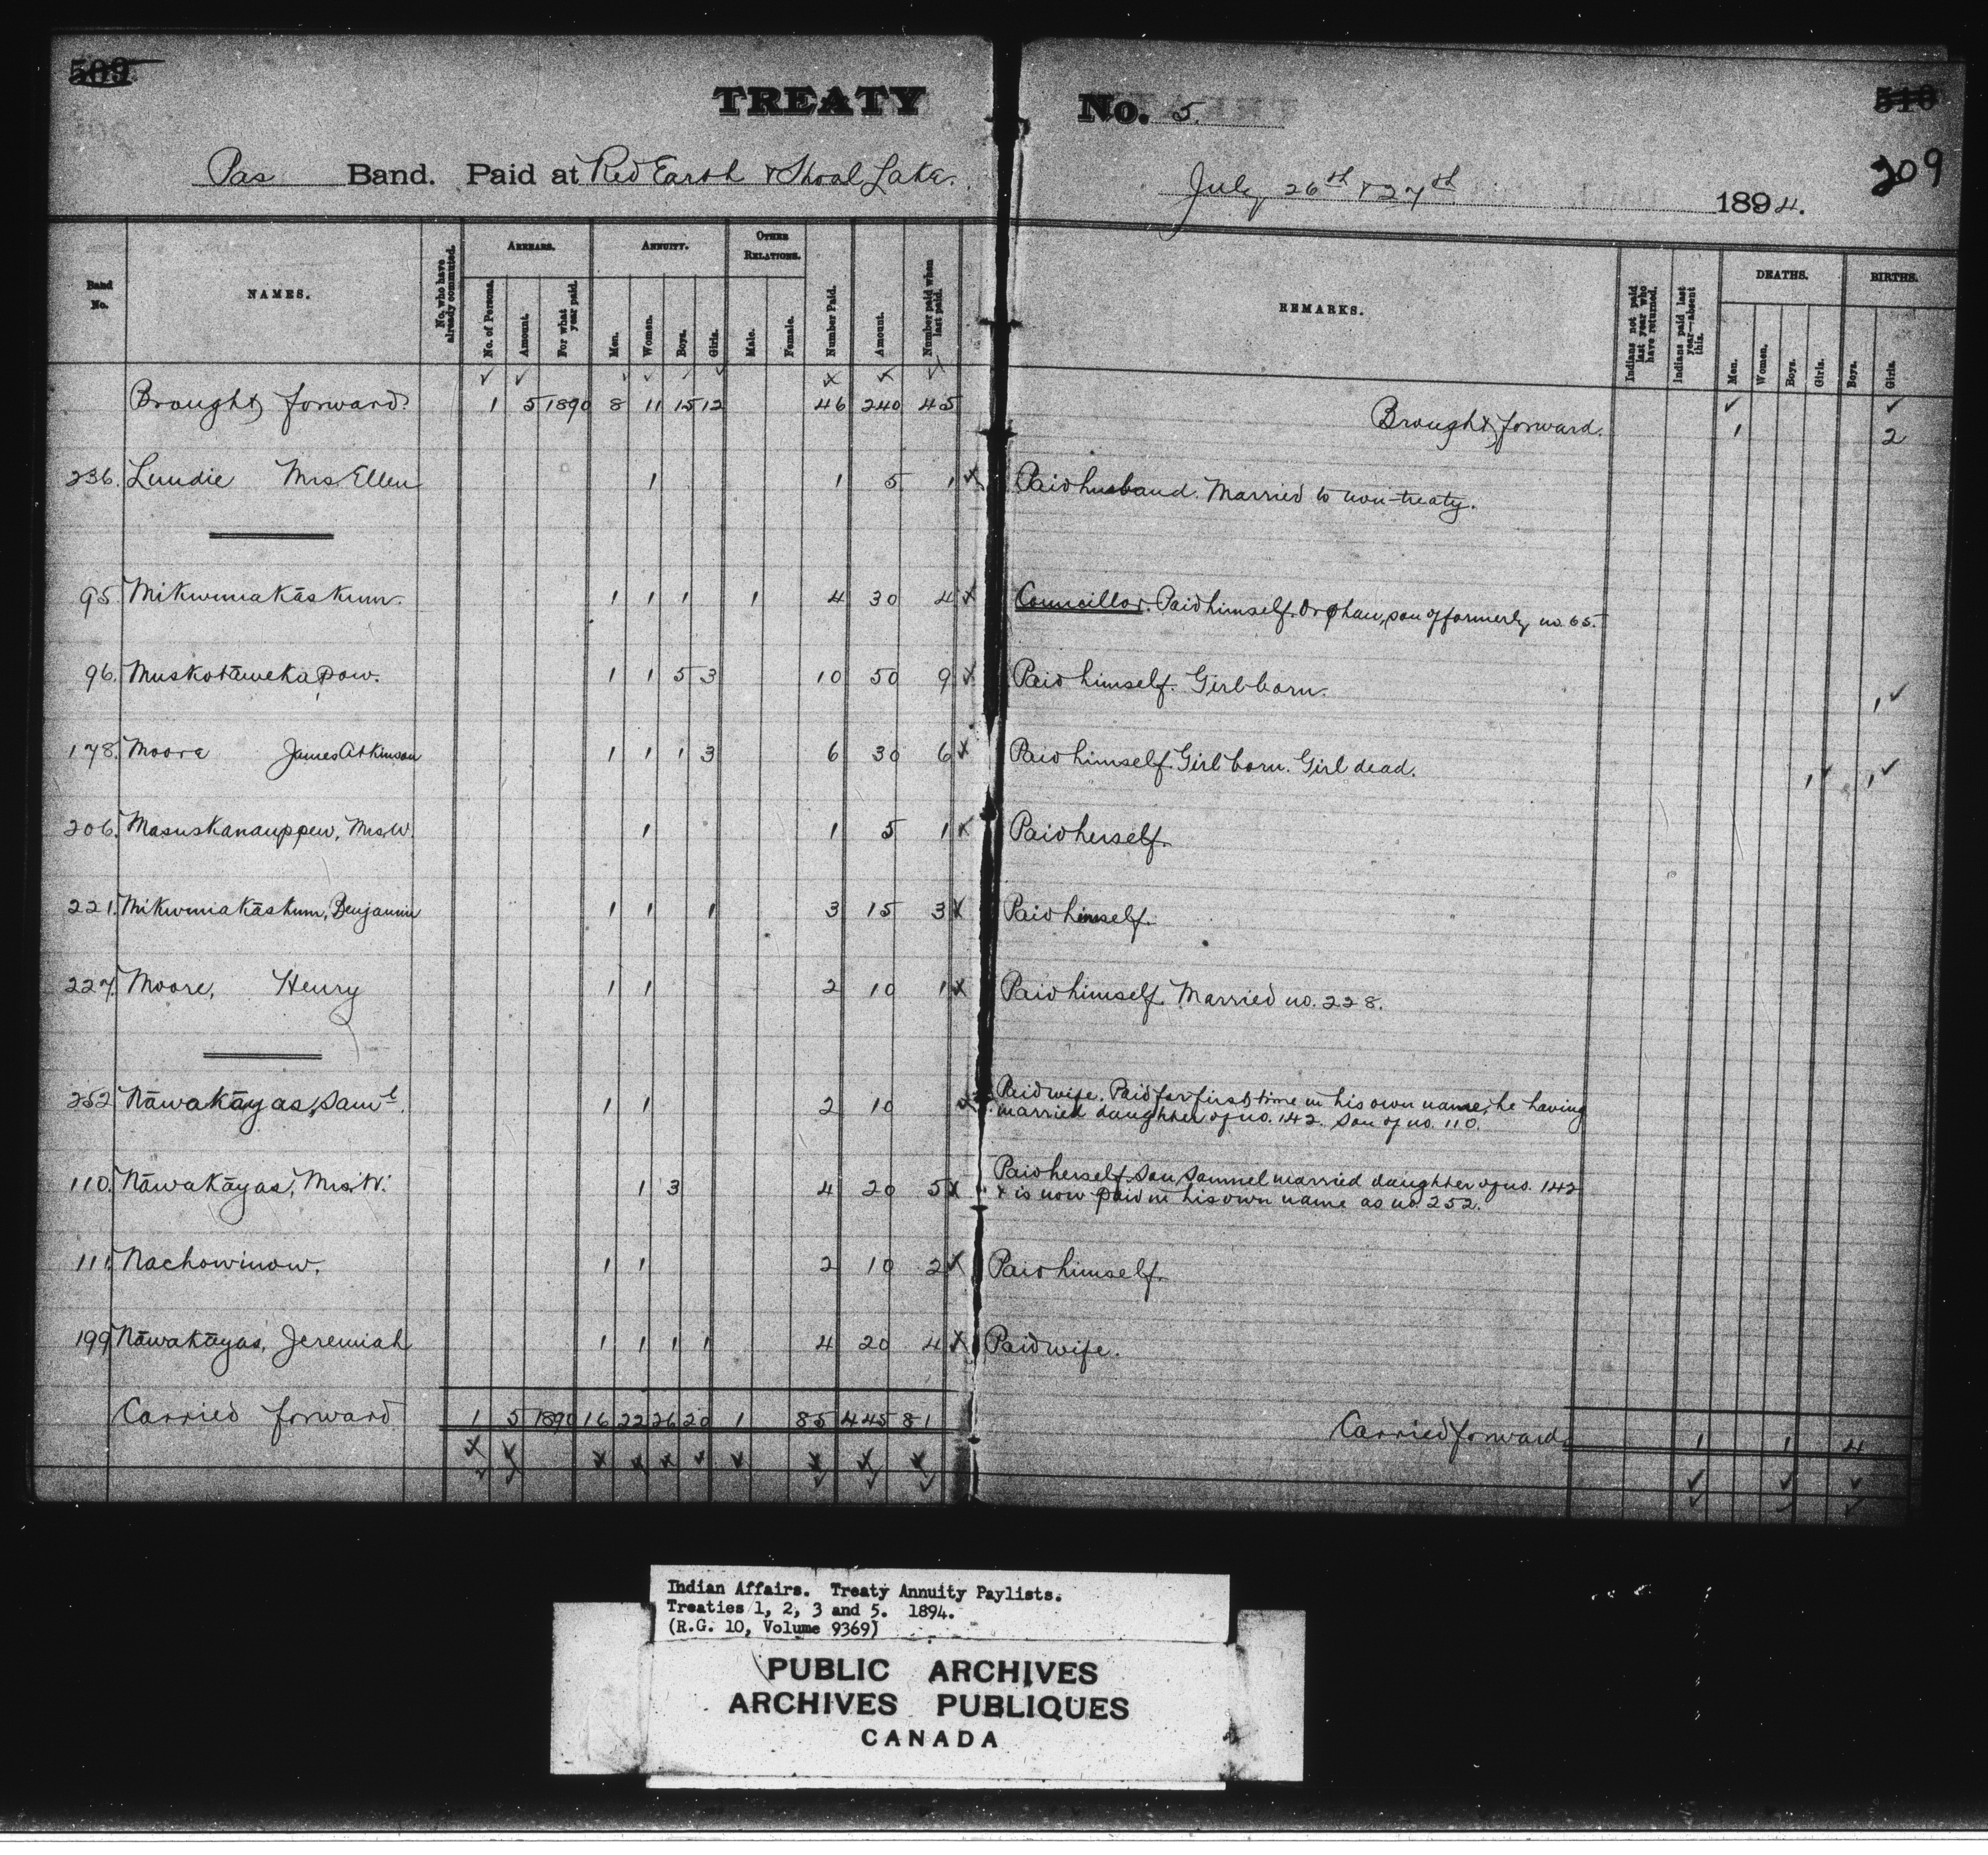 509
TREATY No. 5.
510
209
Pas Band. Paid at Red Earth & Shoal Lake. July 26th & 27th 1894.
Band No.
NAMES.
No. who have already commuted.
ARREARS.
No. of Persons.
Amount.
For what year paid.
ANNUITY.
Men.
Women.
Boys.
Girls.
OTHER RELATIONS.
Male.
Female.
Number Paid.
Amount.
Number paid when last paid.
REMARKS.
Indians not paid last year who have returned.
Indians paid last year—absent this.
DEATHS.
Men.
Women.
Boys.
Girls.
BIRTHS.
Boys.
Girls.
Brought forward. 1 5 1890 8 11 15 12 46 240 45 Brought forward. 1 2
236. Lundie Mrs Ellen 1 1 5 1 Paid husband. Married to non-treaty.
95. Mikwuiakāskum. 1 1 1 1 4 30 4 Councillor. Paid himself. Orphan, son of formerly no. 65.
96. Muskotāwekapow. 1 1 5 3 10 50 9 Paid himself. Girl born. 1
178. Moore James Atkinson 1 1 1 3 6 30 6 Paid himself. Girl born. Girl dead. 1 1
206. Masuskanauppew, Mrs W. 1 1 5 1 Paid herself.
221. Mikwuiakāskum, Benjamin 1 1 1 3 15 3 Paid himself.
227. Moore, Henry 1 1 2 10 1 Paid himself. Married no. 228.
252 Nāwakāyas, Saml. 1 1 2 10 Paid wife. Paid for first time in his own name, he having
married daughter of no. 142. Son of no. 110.
110. Nāwakāyas, Mrs. W. 1 3 4 20 5 Paid herself. Son Samuel married daughter of no. 142
& is now paid in his own name as no. 252.
111. Nachowinow. 1 1 2 10 2 Paid himself.
199 Nāwakāyas, Jeremiah 1 1 1 1 4 20 4 Paid wife.
Carried forward 1 5 1890 16 22 26 20 1 85 445 81 Carried forward. 1 1 4
Indian Affairs. Treaty Annuity Paylists.
Treaties 1, 2, 3 and 5. 1894.
(R.G. 10, Volume 9369)
PUBLIC ARCHIVES
ARCHIVES PUBLIQUES
CANADA